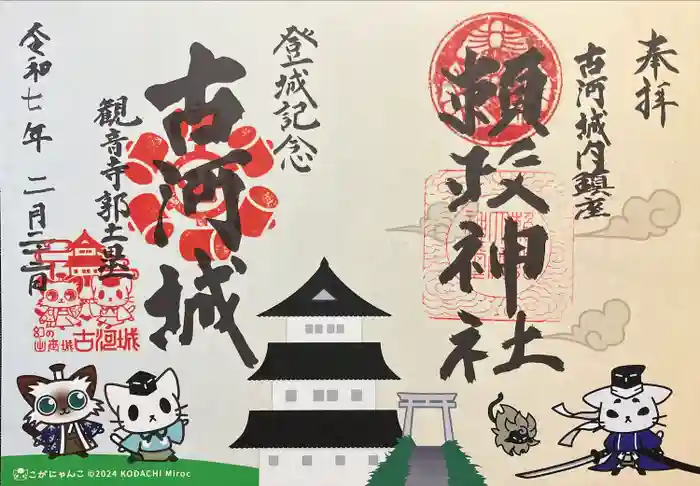 奉拝
古河城内鎮座
頼政神社
登城記念
古河城
観音寺郭土塁
令和七年 二月二二日
幻の
古河城
こがにゃんこ ©2024 KODACHI Miroc